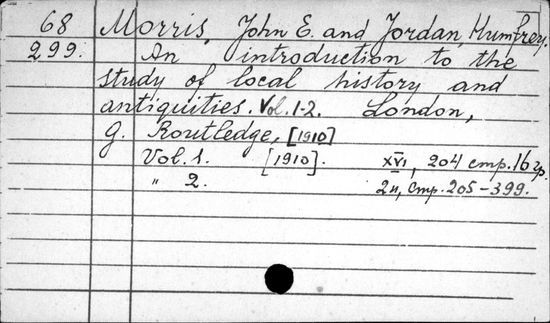 68 Morris, John E. and Jordan, Humfrey.
299. An introduction to the
study of local history and
antiquities. Vol. 1-2. London,
G. Routledge, [1910]
Vol. 1. [1910]. XVI, 204 стр. 16 гр.
" 2. 2 л, стр. 205-399.